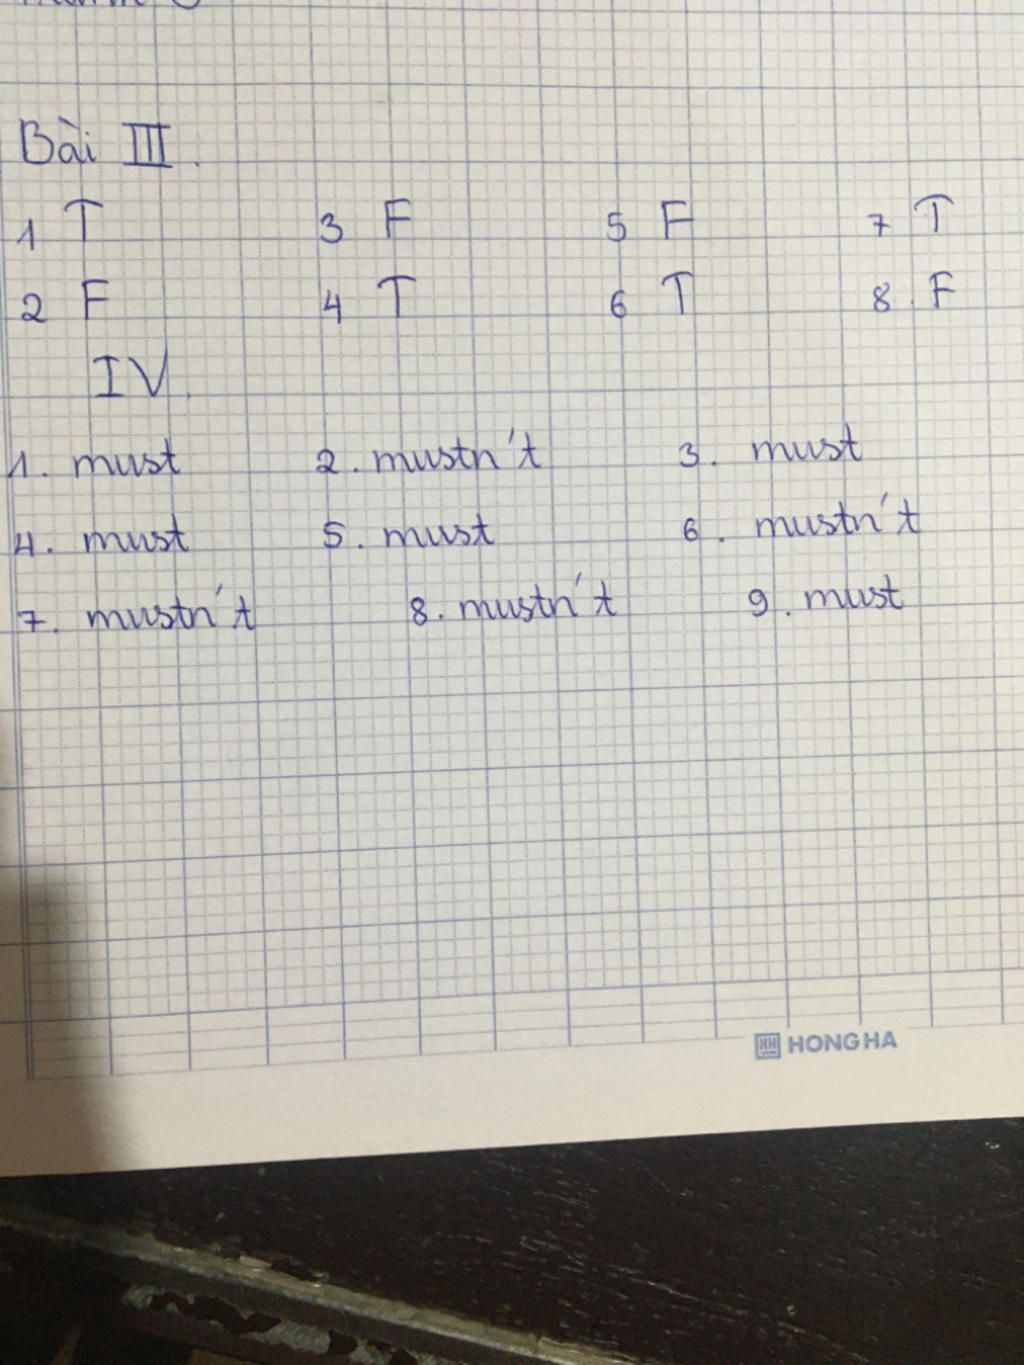 Bài III.
1 T 3 F 5 F 7 T
2 F 4 T 6 T 8. F
IV.
1. must 2. mustn't 3. must
4. must 5. must 6. mustn't
7. mustn't 8. mustn't 9. must
HH HONG HA